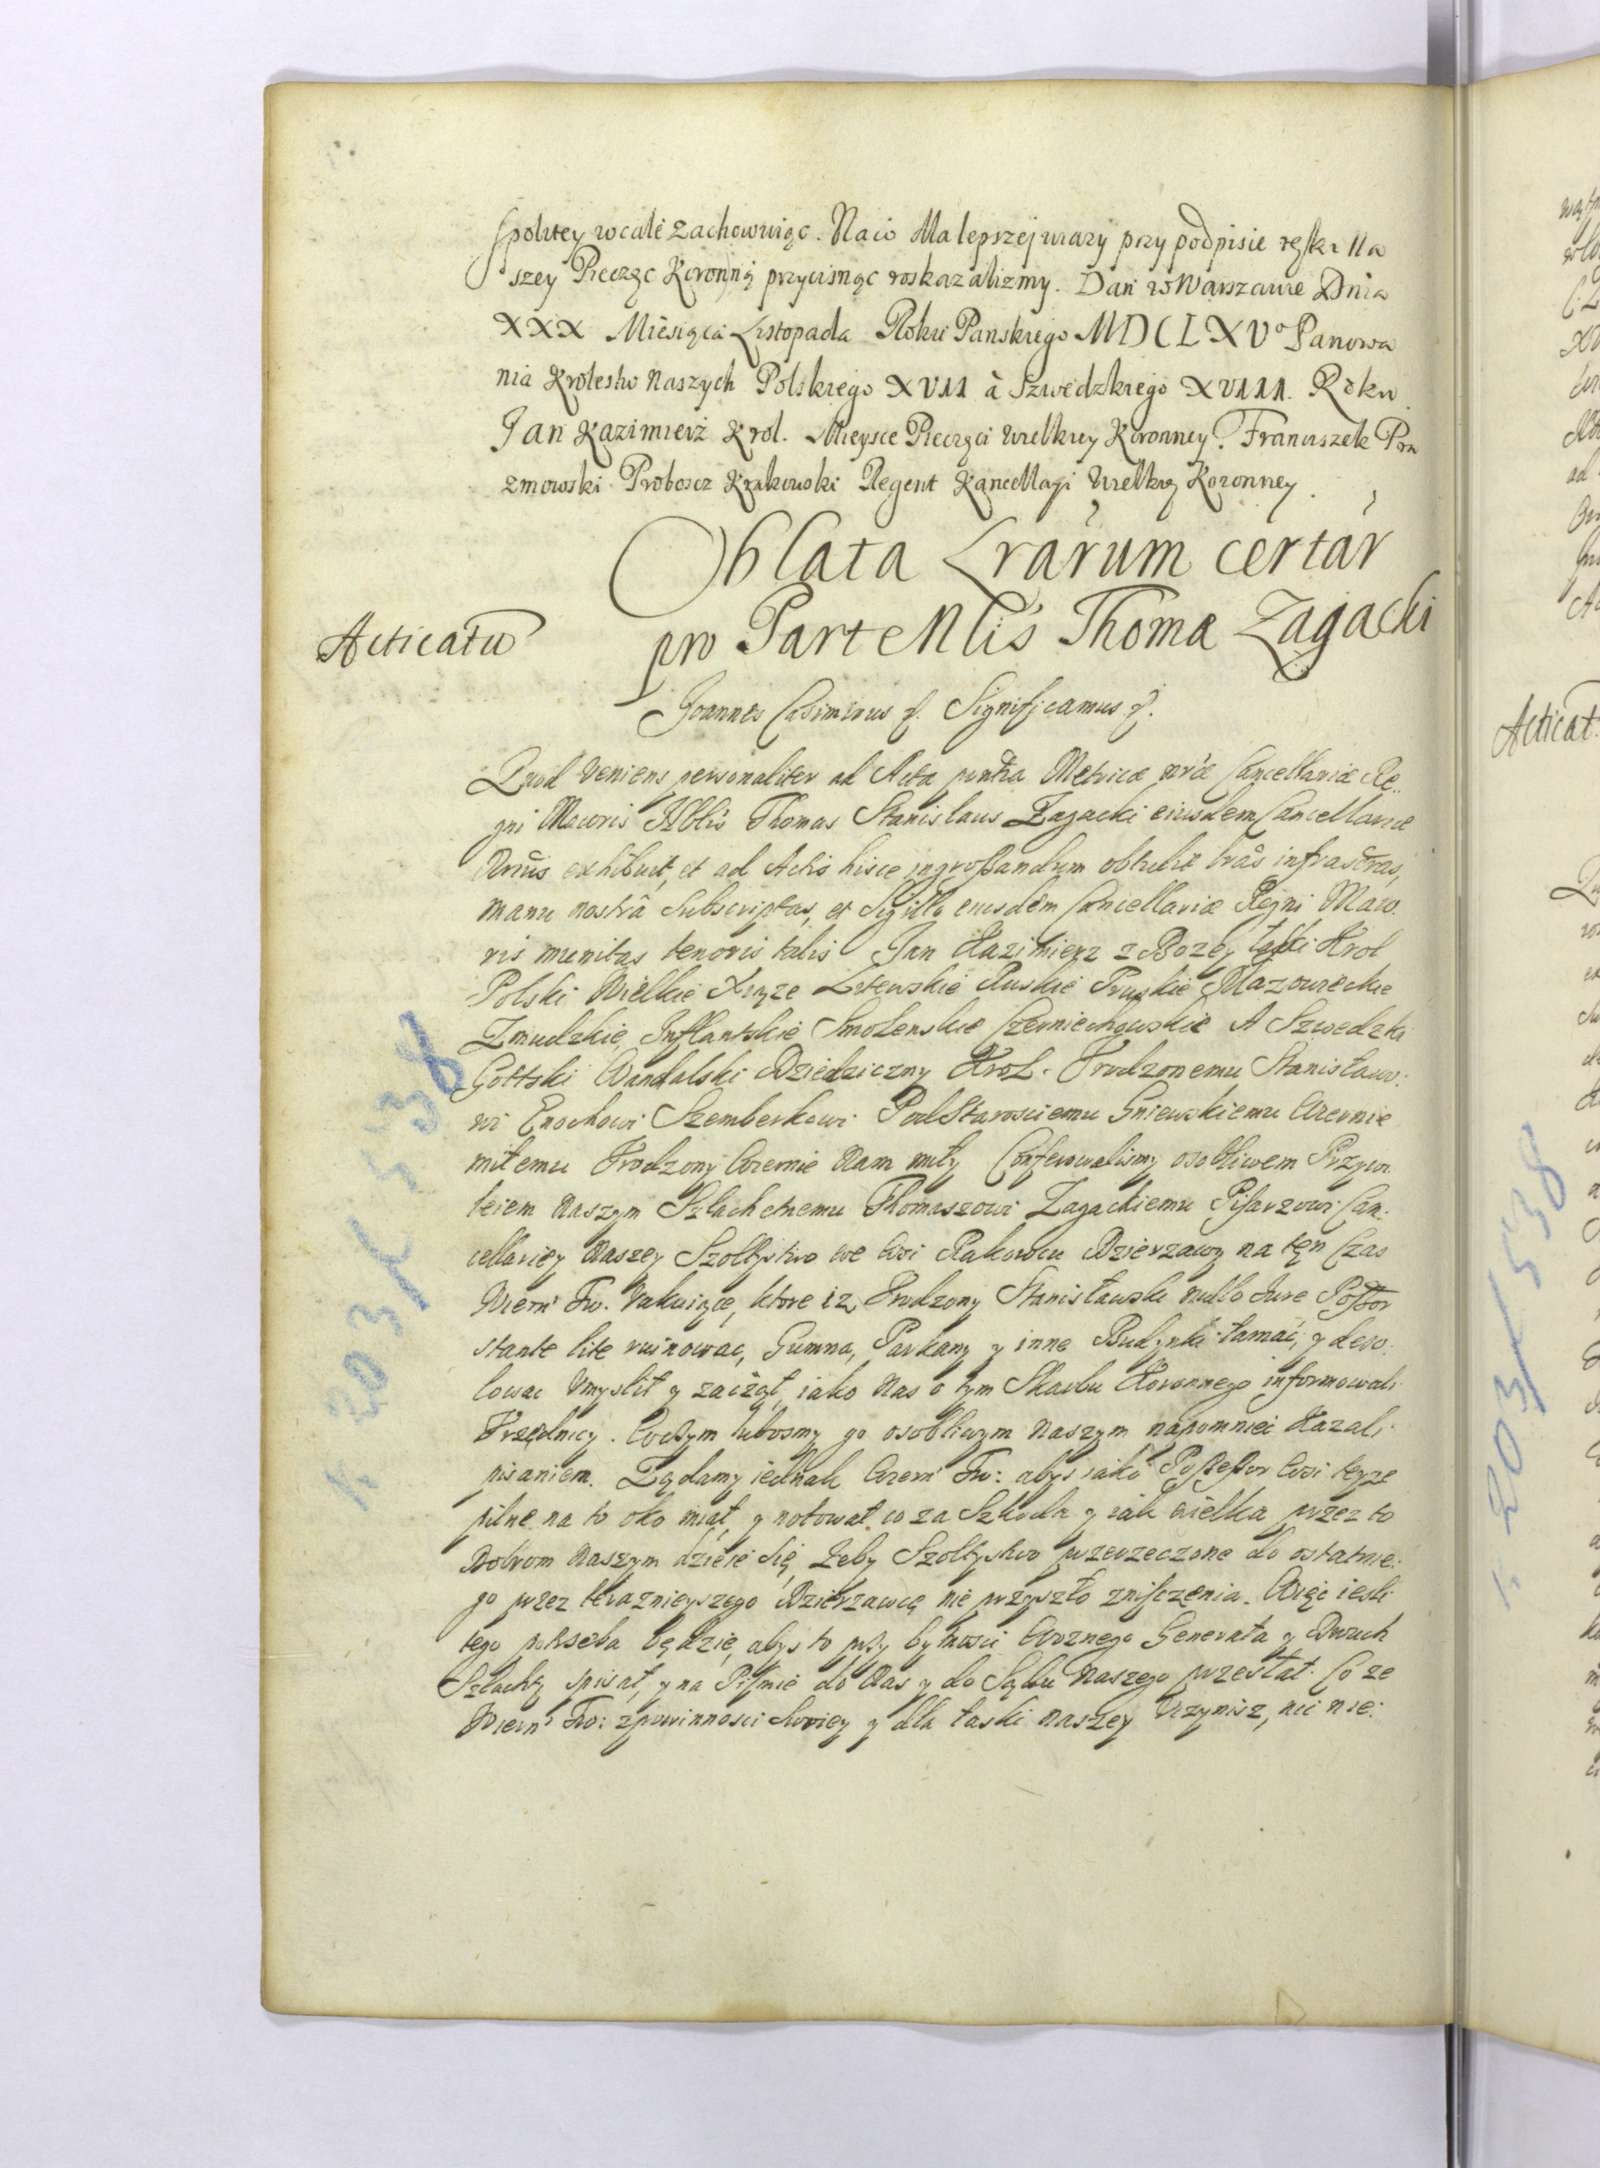 spolitey wcale zachowuiąc. Na co Ma lepszej wiary przy podpisie ręki Na
szey Pieczęc Koronną przycisnąc roskazalizmy. Dan w Warszawie Dnia
XXX Miesiąca Listopada Roku Panskiego MDCLXV° Panowa
nia Krolestw Naszych Polskiego XVII à Szwedzkiego XVIII. Roku
Jan Kazimierz Krol. Mieysce Pieczęci wielkiey Koronney. Franciszek Pra
zmowski Proboszcz Krakowski Regent Kancellarji Wielkiey Koronney.
Oblata Lrarum certar
Acticatū
pro Parte Nlis Thoma Zagacki
Joannes Casimirus &. Significamus &.
Quod veniens personaliter ad Acta pntia Metrica nrae Cancellariæ Re
gni Maioris Nblis Thomas Stanislaus Zagacki eiusdem Cancellariæ
Nrius exhibuit, et ad Actis hisce ingrossandum obtulit lras infrascras,
manu nostrâ Subscriptas, et Sigillo eiusdem Cancellariæ Regni Maio
ris munitas tenoris talis Jan Kazimierz z Bozey łaski Krol
Polski Wielkie Xiąze Litewskie Ruskie Pruskie Mazowieckie
Zmudzkie, Inflantskie Smolenskie Czerniechowskie A Szwedzki
Gottski Wandalski Dziedziczny Krol. Urodzonemu Stanisławo
wi Enochowi Szemberkowi PodStarosciemu Gniewskiemu Wiernie
miłemu Urodzony Wiernie Nam miły Conferowalismy osobliwem Przywi
leiem Naszym Szlachetnemu Thomaszowi Zagackiemu Pisarzowi Can
cellariey Naszey Szołtystwo we Wsi Rakowcu Dzierzawy na tęn Czas
Wiern Tw. Wakuiące, ktore iz Urodzony Stanisławski nullo Jure Possor
stante lite ruinowac, Gumna, Parkany y inne Budynki łamać, y dezo
lowac Vmyslił y zaczął, iako Nas o tym Skarbu Koronnego informowali
Urzędnicy. Wczym lubosmy go osobliwym Naszym napomniec Kazali
pisaniem. Ządamy iednak Wiern Tw: abys iako Possessor Wsi teyze
pilne na to oko miał, y notował co za Szkoda y iak wielka przez to
Dobrom Naszym dzieie się, żeby Szołtystwo przerzeczone do ostatnie
go przez terazniejszego Dzierzawcę nie przyszło zniszczenia. Więc iesli
tego potrzeba będzie, abys to przy bytnosci Woznego Generała y Dwuch
Szlachty spisał, y na Pismie do Nas y do Sądu Naszego przesłał. Co ze
Wiern Tw: z powinnosci Swoiey y dla łaski naszey Vczynisz, nic nie